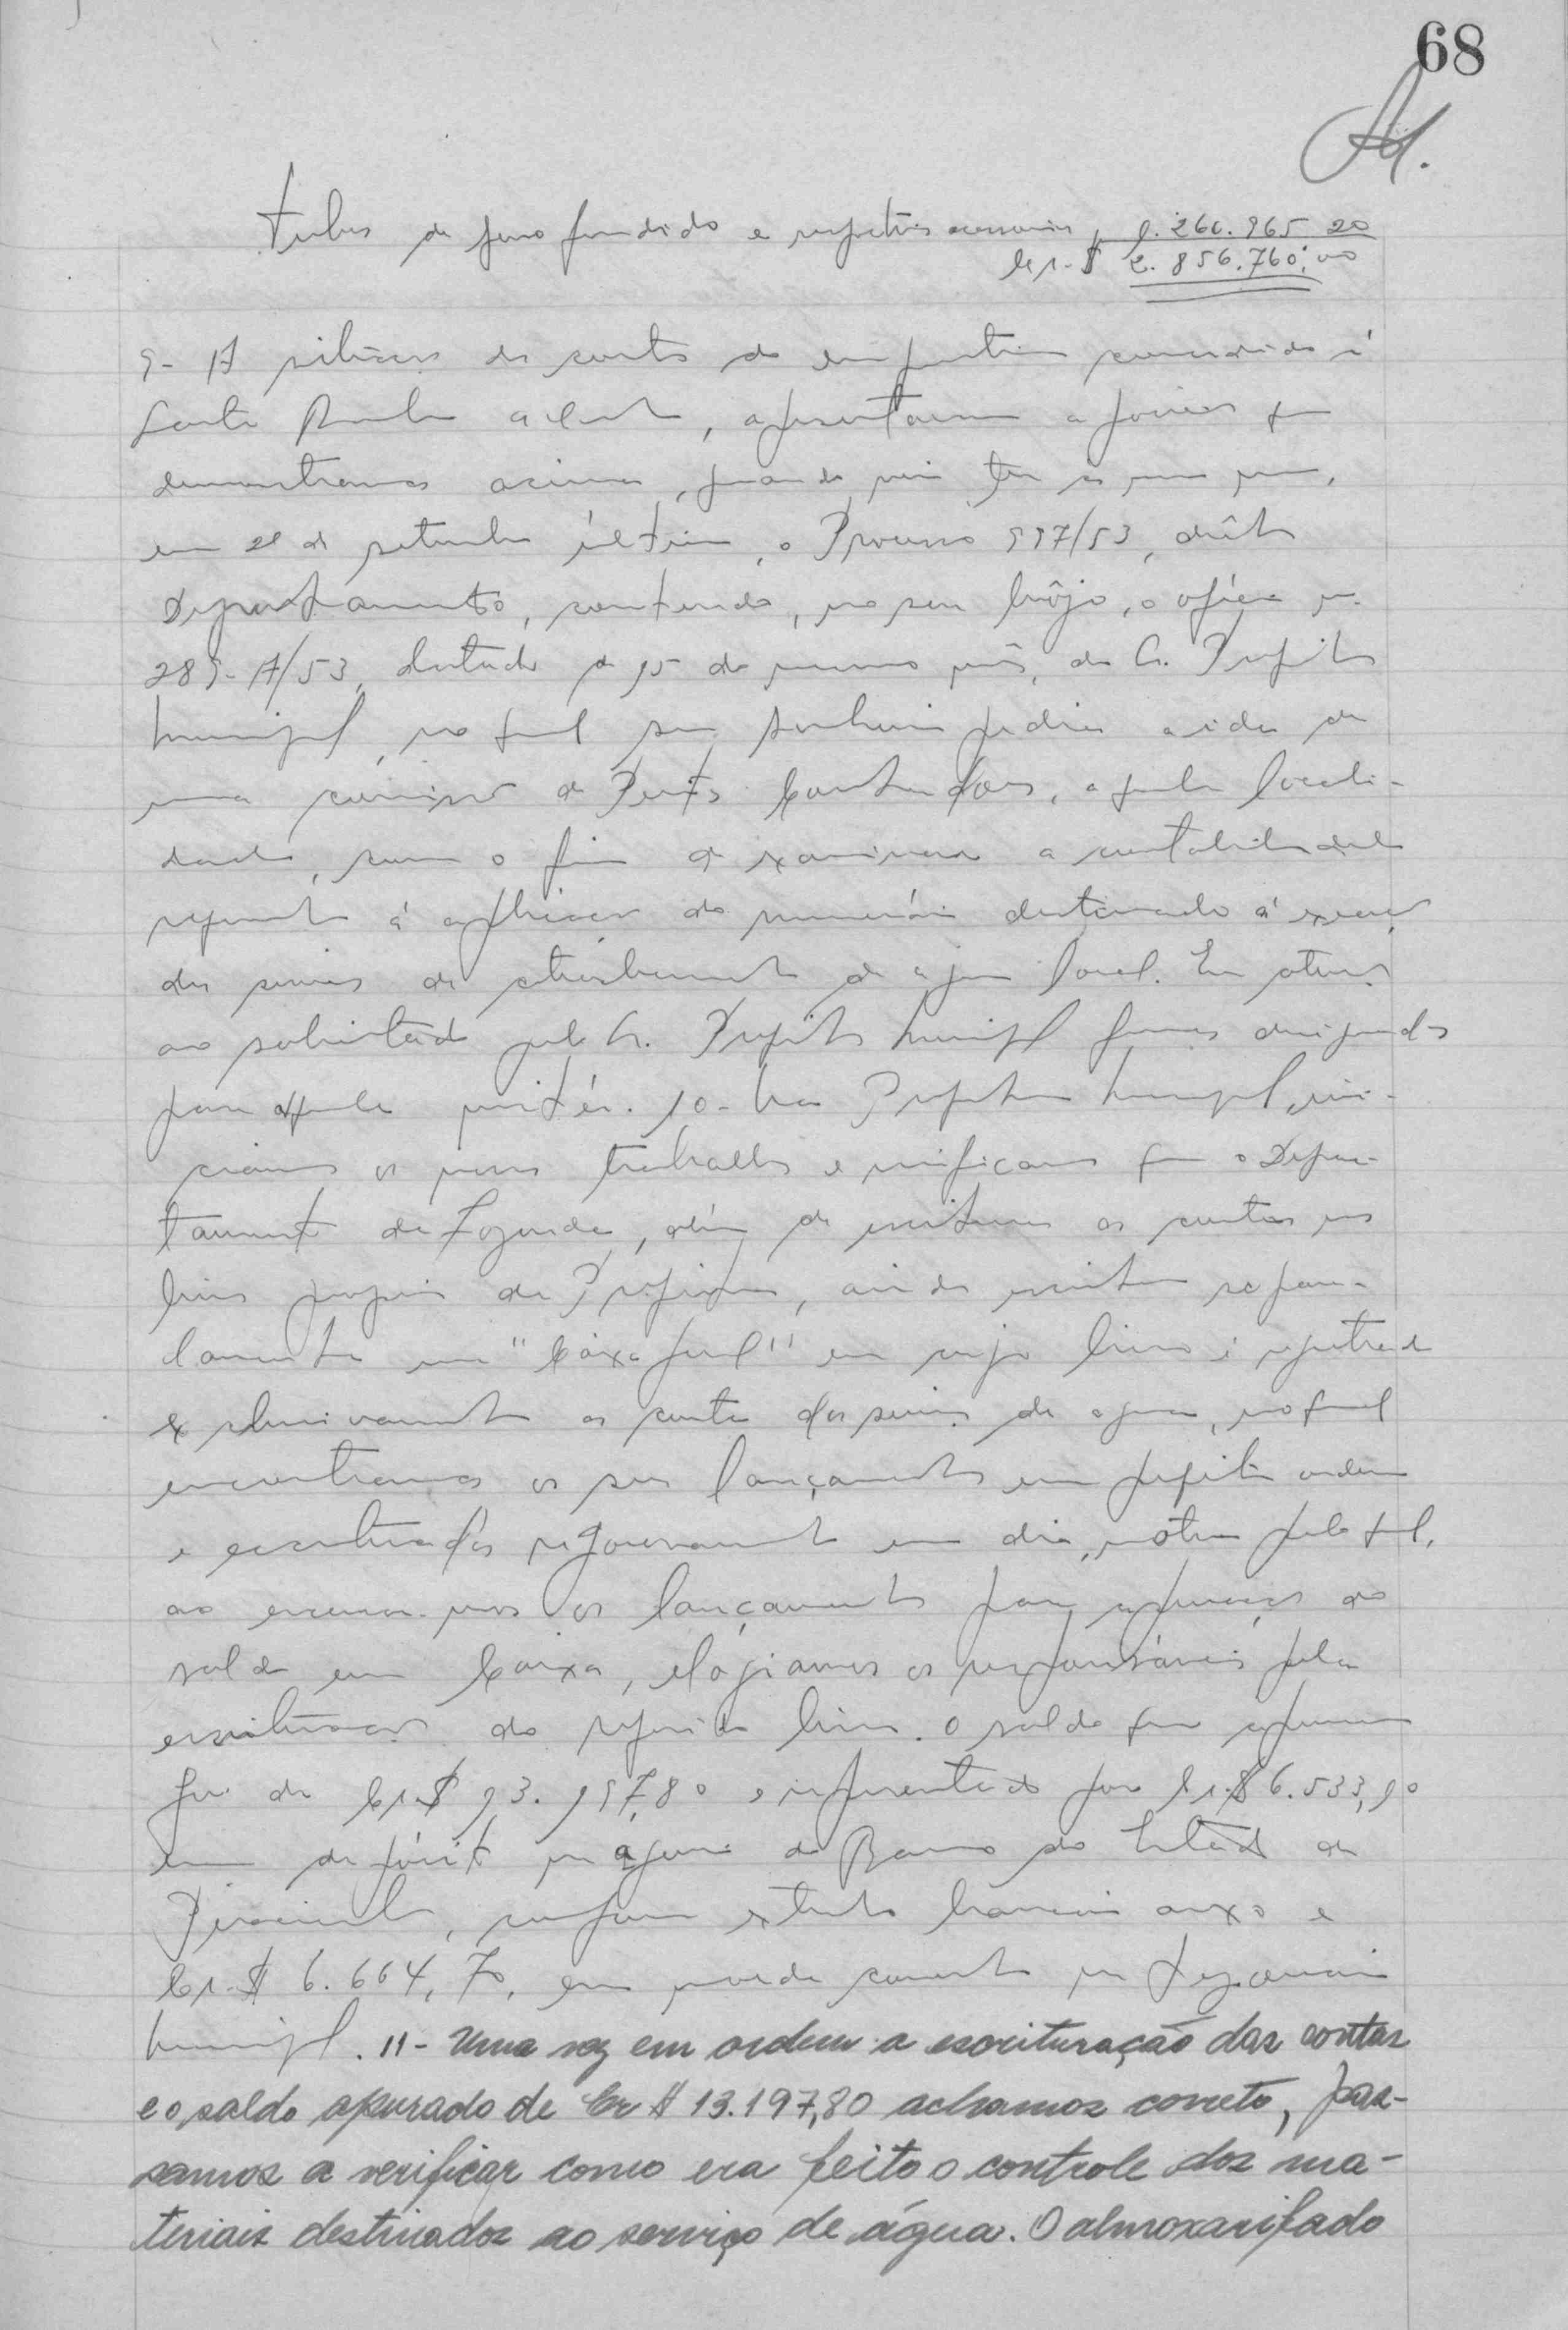 68
Tubos de ferro fundido e respectivos acessorios 
Cr.$ 2.856.760,00
9- A situação da conta do emprestimo concedido á
, apresentava a posição que
demonstramos acima, quando veio ter ás nossas mãos,
em de setembro último, o Processo 997/53, dêste
Departamento, contendo, no seu bôjo, o oficio nº
289-A/53, datado de 15 do mesmo mês, do Sr. Prefeito
Municipal, no qual sua senhoria pedia a ida de
uma comissão de Peritos Contadores, aquela locali-
dade, com o fim de examinar a contabilidade
referente á aplicação do numerário destinado á execução
dos serviços de abastecimento de agua local. Em atenção
ao solicitado pelo Sr. Prefeito Municipal fomos designados
para aquele mistér. 10- Na Prefeitura Municipal, ini-
ciamos os nossos trabalhos e verificamos que o Depar-
tamento da Fazenda, além de escriturar as contas nos
livros proprios da Prefeitura, ainda escritura separa-
damente um "Caixa geral" em cujo livro é registrado
exclusivamente as contas dos serviços de agua, no qual
encontramos os seus lançamentos em perfeita ordem
e escriturados rigorosamente em dia, motivo pelo qual,
ao encerrar-mos os lançamentos para apuração do
saldo em Caixa, elogiamos os responsáveis pela
escrituração do referido livro. O saldo que apuramos
foi de Cr.$ 13.197,80 representado por Cr.$ 6.533,10
em depósito na agencia do Banco do Estado de
, conforme extrato bancario anexo e
Cr.$ 6.664,70, em moeda corrente na Tezouraria
Municipal. 11- Uma vez em ordem a escrituração das contas
e o saldo apurado de Cr $ 13.197,80 achamos correto, pas-
samos a verificar como era feito o controle dos ma-
teriais destinados ao serviço de água. O almoxarifado